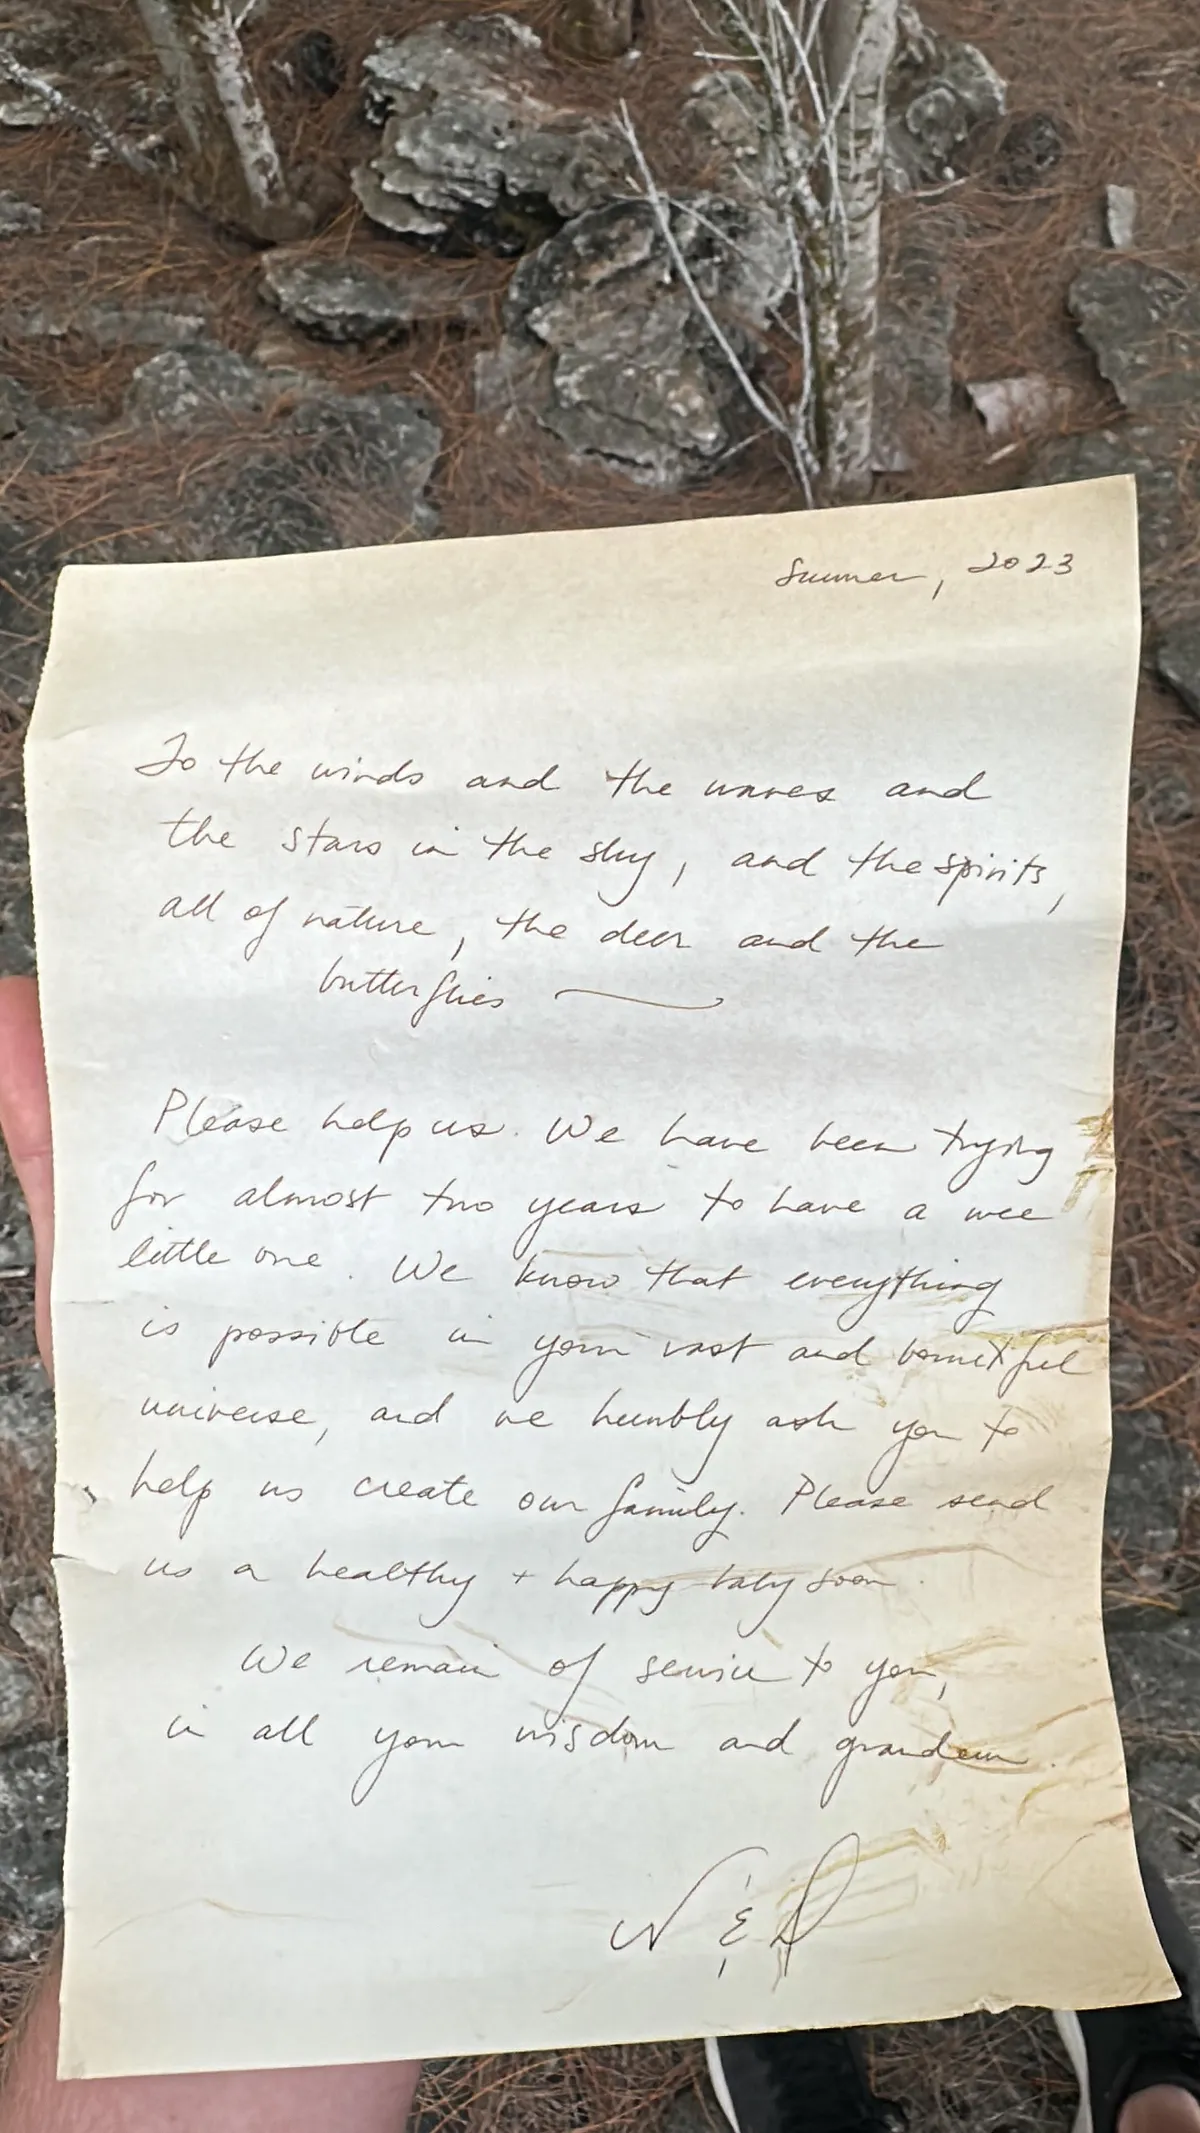 Summer, 2023
To the winds and the waves and
the stars in the sky, and the spirits,
all of nature, the deer and the
butterflies —
Please help us. We have been trying
for almost two years to have a wee
little one. We know that everything
is possible in your vast and bountiful
universe, and we humbly ask you to
help us create our family. Please send
us a healthy + happy baby soon.
We remain of service to you,
in all your wisdom and grandeur.